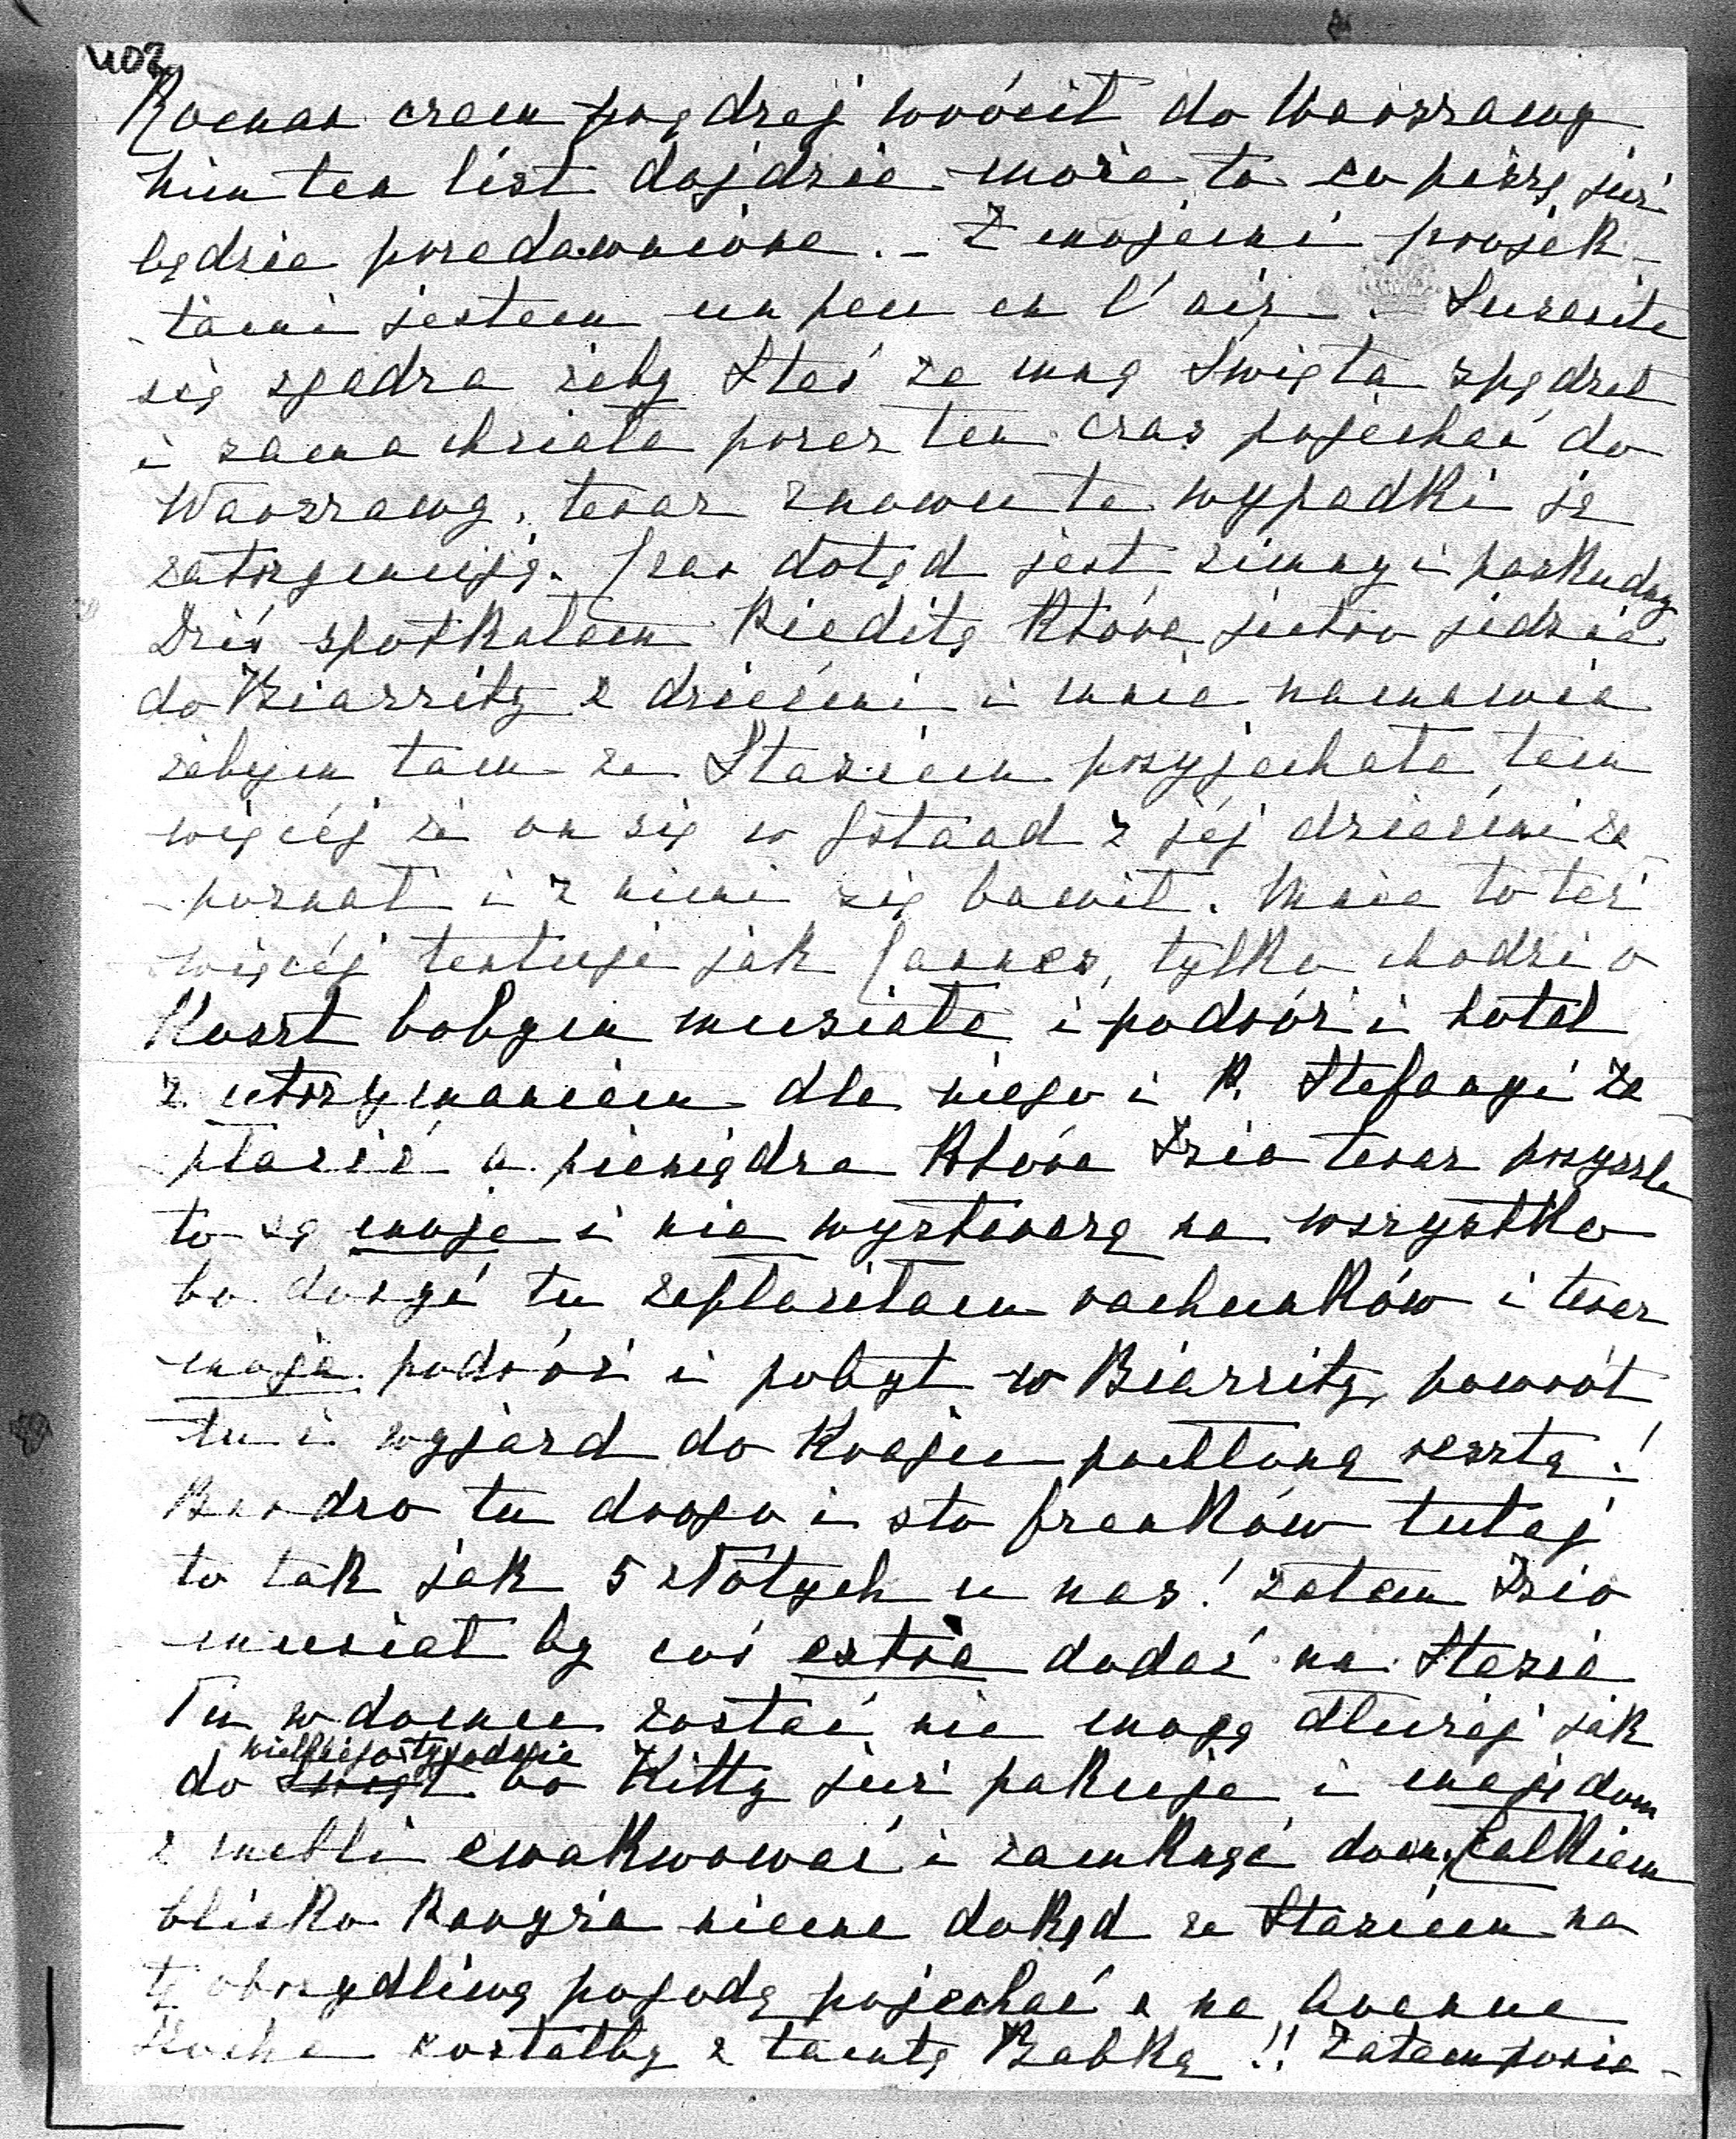 402
Roman czem prędzej wrócił do Warszawy
nim ten list dojdzie może to co piszę już
będzie przedawnione. - Z mojemi projek-
tami jestem un peu en l'air. Suzanite
się zgadza żeby Staś ze mną Święta spędzał
i sama chciała przez ten czas pojechać do
Warszawy, teraz znowu te wypadki ją
zatrzymują. Czas dotąd jest zimny i paskudny
Dziś spotkałam Rieditę która jutro jedzie
do Biarritz z dziećmi i mnie namawia
żebym tam ze Stasiem przyjechała tem
więcéj że on się w Gstaad z jéj dziećmi za
poznał i z niemi się bawił. Mnie to też
więcéj tentuje jak Cannes, tylko chodzi o
Koszt bobym musiała i podróż i hotel
z utrzymaniem dla niego i P. Stefanji za
płacić a pieniądze które Dzio teraz przyszle
to są moje i nie wystarczą na wszystko
bo dosyć tu zapłaciłam rachunków i teraz
moja podróż i pobyt w Biarritz, powrót
tu i wyjazd do Kraju pochłoną resztę!
Bardzo tu drogo i sto franków tutaj
to tak jak 5 złotych u nas! zatem Dzio
musiał by coś extra dodać na Stasia
Tu w domu zostać nie mogę dłużej jak
wielkiego tygodnia
do Świąt bo Kitty już pakuje i mają dom
z mebli ewakwować i zamknąć dom. Całkiem
blisko Paryża niema dokąd ze Stasiem na
tę obrzydliwą pogodę pojechać a na Avenue
Hoche zostałby z tamtą Babką!! Zatem powie-